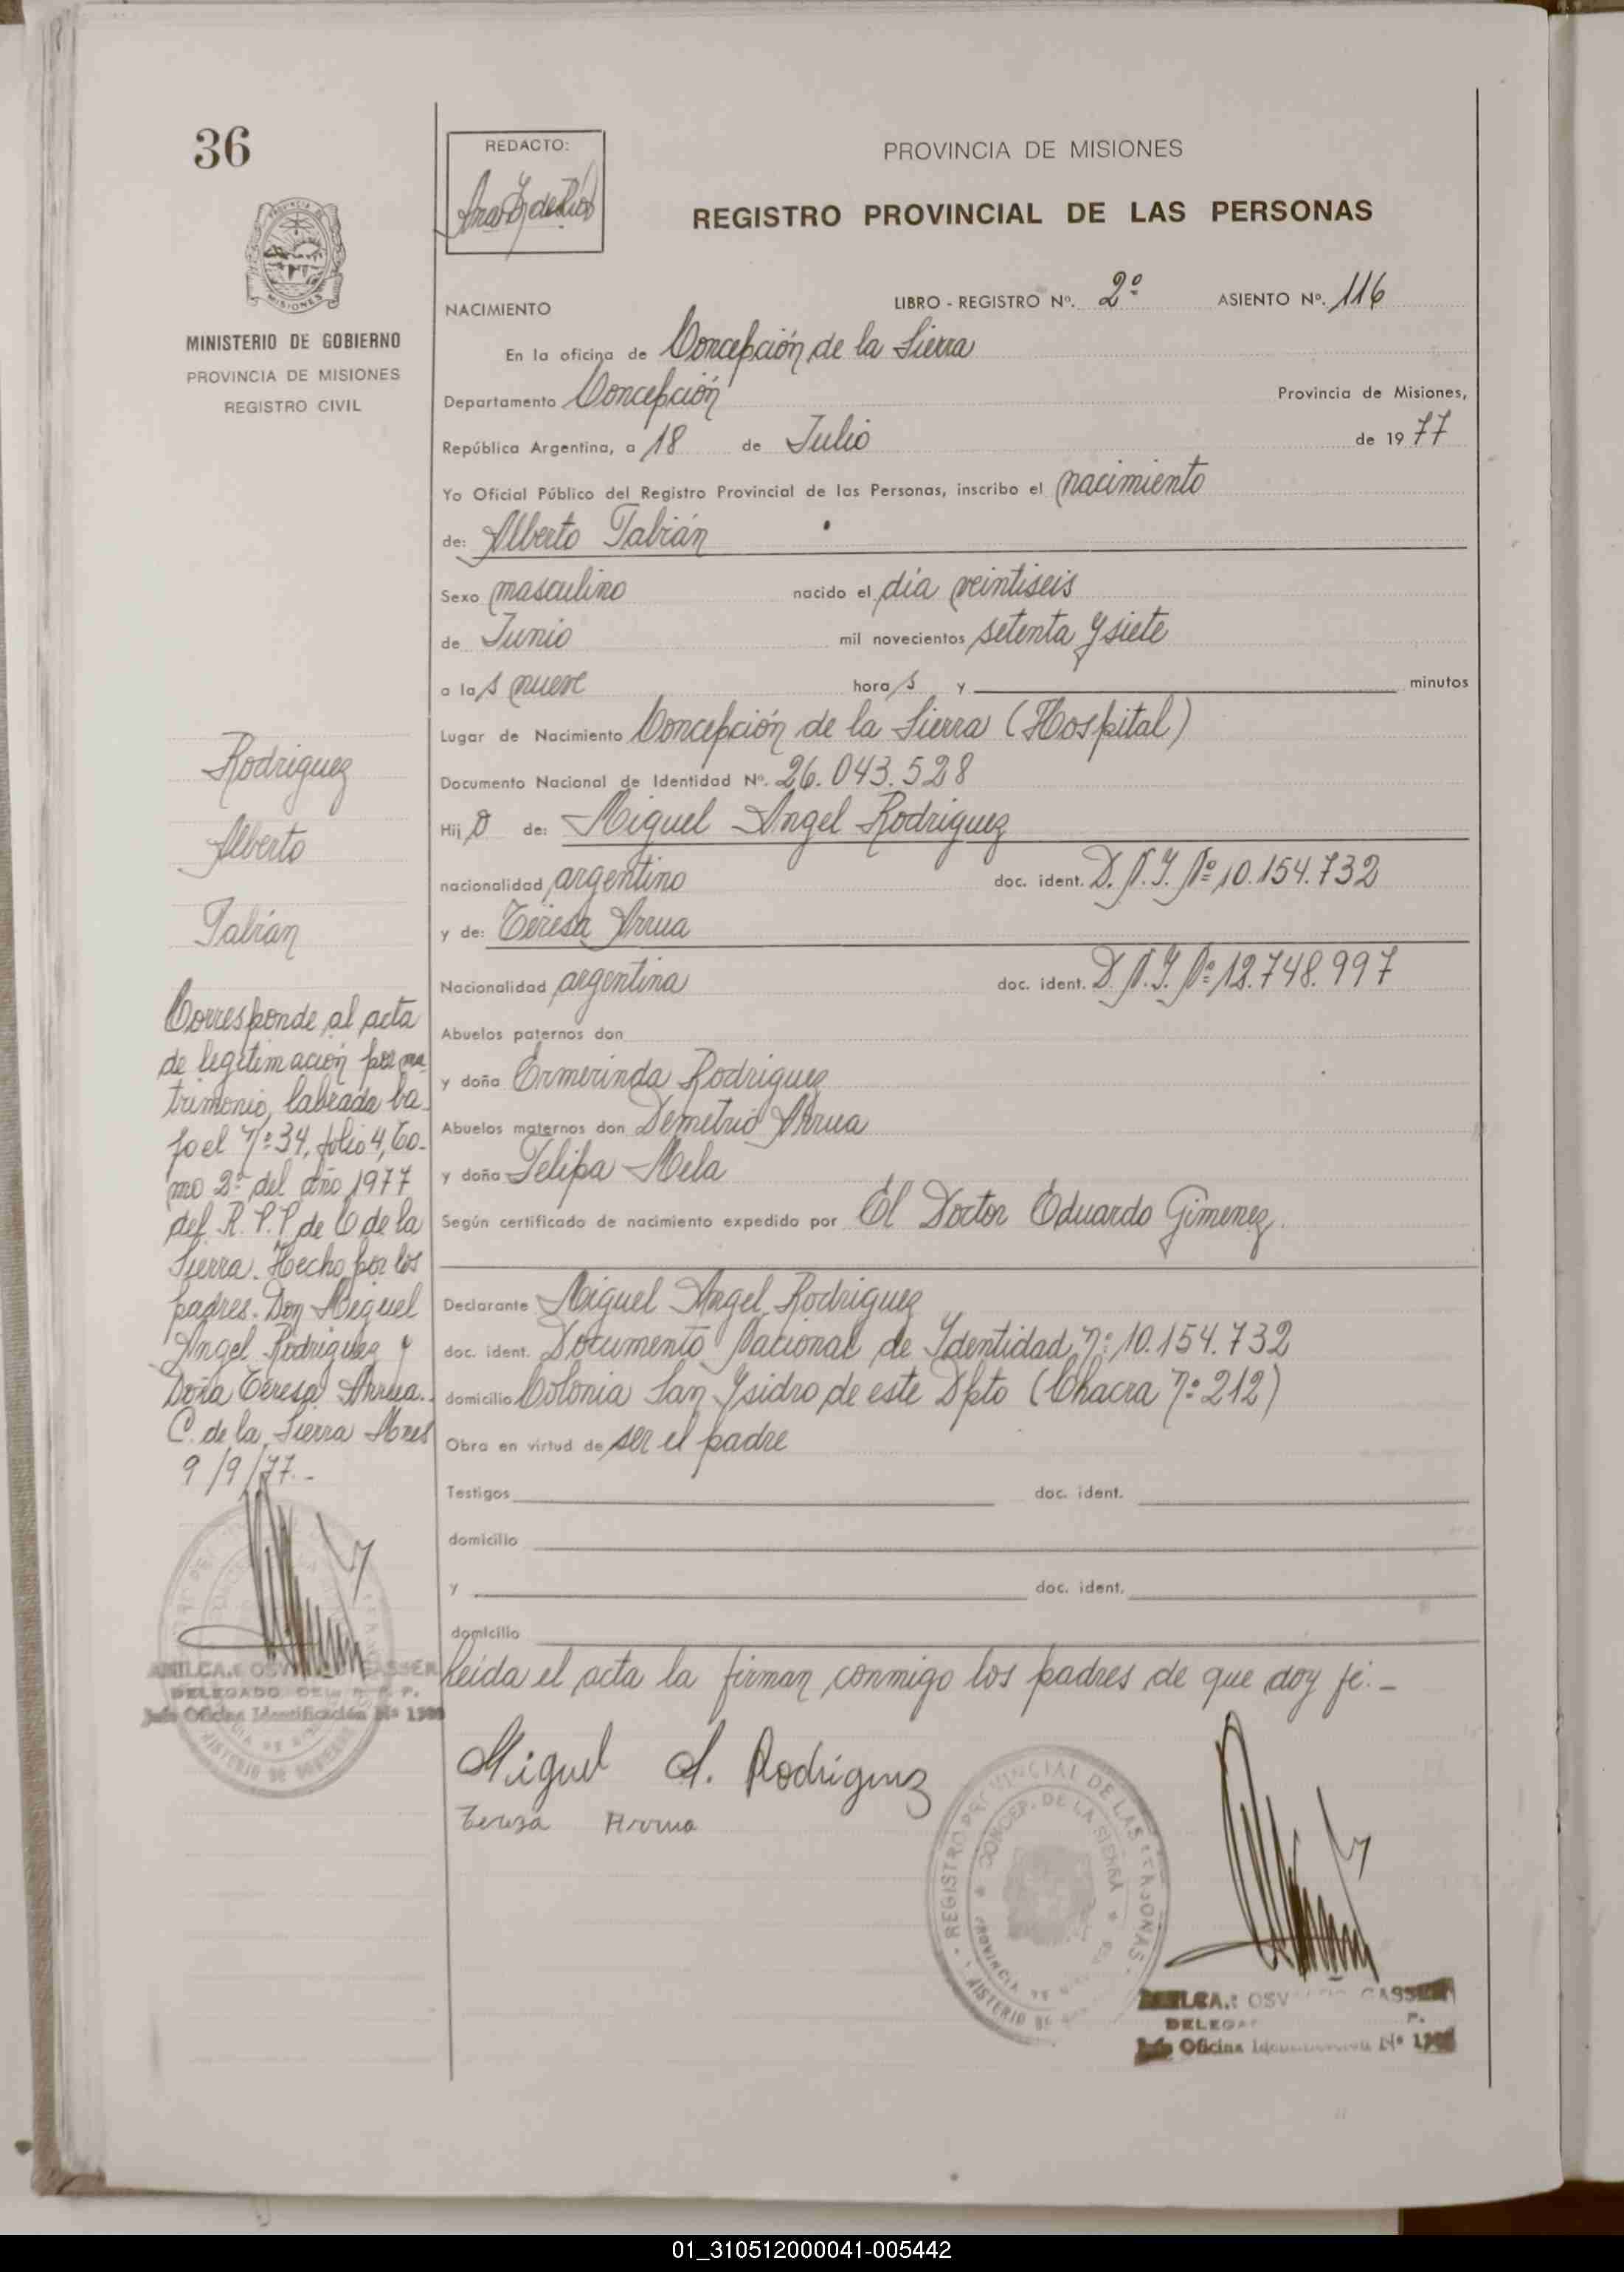 36
PROVINCIA DE MISIONES
MINISTERIO DE GOBIERNO
PROVINCIA DE MISIONES
REGISTRO CIVIL
Rodriguez
Alberto
Fabián
Corresponde al acta
de legitimación por ma
trimonio, labrada ba-
jo el nº 34, folio 4, to-
mo 2º del año 1977
del R. P. P. de C de la
Sierra. Hecho por los
padres. Don Miguel
Angel Rodriguez y
Doña Teresa Arrua.
C. de la Sierra Mnes
9/9/77.-
DELEGADO DEL R. P. P.
Jefe Oficina Identificación Nº
REDACTO:
PROVINCIA DE MISIONES
REGISTRO PROVINCIAL DE LAS PERSONAS
LIBRO - REGISTRO Nº. 2º ASIENTO Nº. 116
NACIMIENTO
En la oficina de Concepción de la Sierra
Departamento Concepción Provincia de Misiones,
República Argentina, a 18 de Julio de 1977
Yo Oficial Público del Registro Provincial de las Personas, inscribo el nacimiento
de: Alberto Fabián
Sexo masculino nacido el día veintiseis
de Junio mil novecientos setenta y siete
a las nueve horas y minutos
Lugar de Nacimiento Concepción de la Sierra (Hospital)
Documento Nacional de Identidad Nº. 26.043.528
Hijo de: Miguel Angel Rodriguez
nacionalidad argentino doc. ident. D.N.I. Nº 10.154.732
y de: Teresa Arrua
Nacionalidad argentina doc. ident. D.N.I. Nº 12.748.997
Abuelos paternos don
y doña Ermerinda Rodriguez
Abuelos maternos don Demetrio Arrua
y doña Felipa Mela
Según certificado de nacimiento expedido por El Doctor Eduardo Gimenez.
Declarante Miguel Angel Rodriguez
doc. ident. Documento Nacional de Identidad nº 10.154.732
domicilio Colonia San Ysidro de este Dpto (Chacra nº 212)
Obra en virtud de ser el padre
Testigos doc. ident.
domicilio
y doc. ident.
domicilio
Leida el acta la firman conmigo los padres de que doy fé.-
Miguel A. Rodriguez
Teresa Arrua
REGISTRO PROVINCIAL DE LAS PERSONAS
CONCEP. DE LA SIERRA
Oficina
01_310512000041-005442